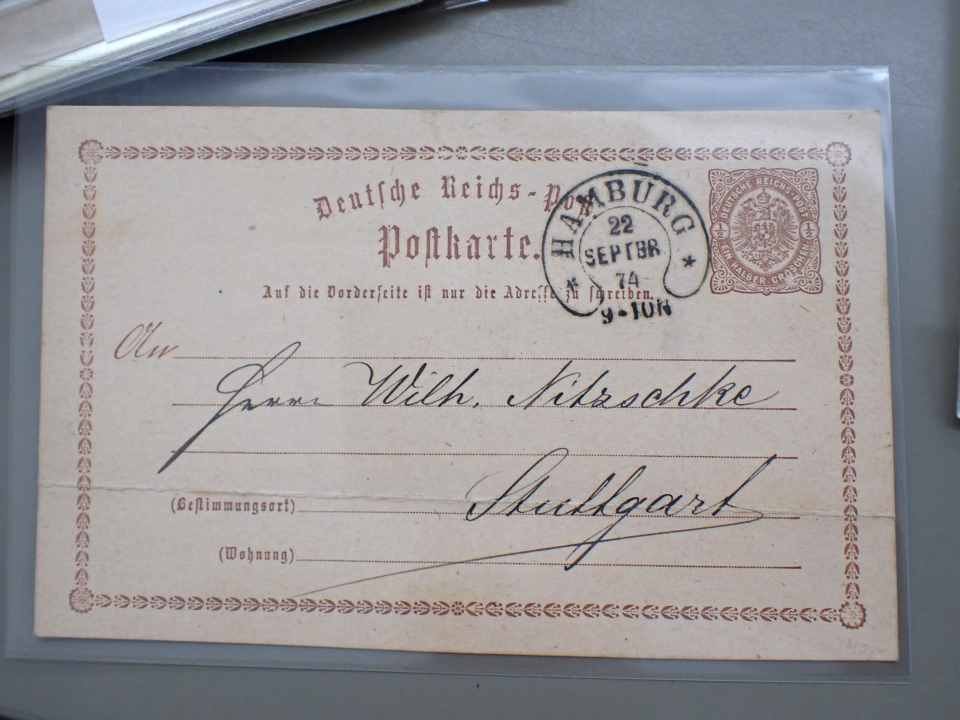 Deutſche Reichs-Post
Postkarte.
Auf die Vorderſeite iſt nur die Adreſſe zu ſchreiben.
HAMBURG
22
SEPTBR
74
9-10N
DEUTSCHE REICHSPOST
½ ½
EIN HALBER GROSCHEN
An
Herrn Wilh. Nitzschke
Stuttgart
(Beſtimmungsort)
(Wohnung)